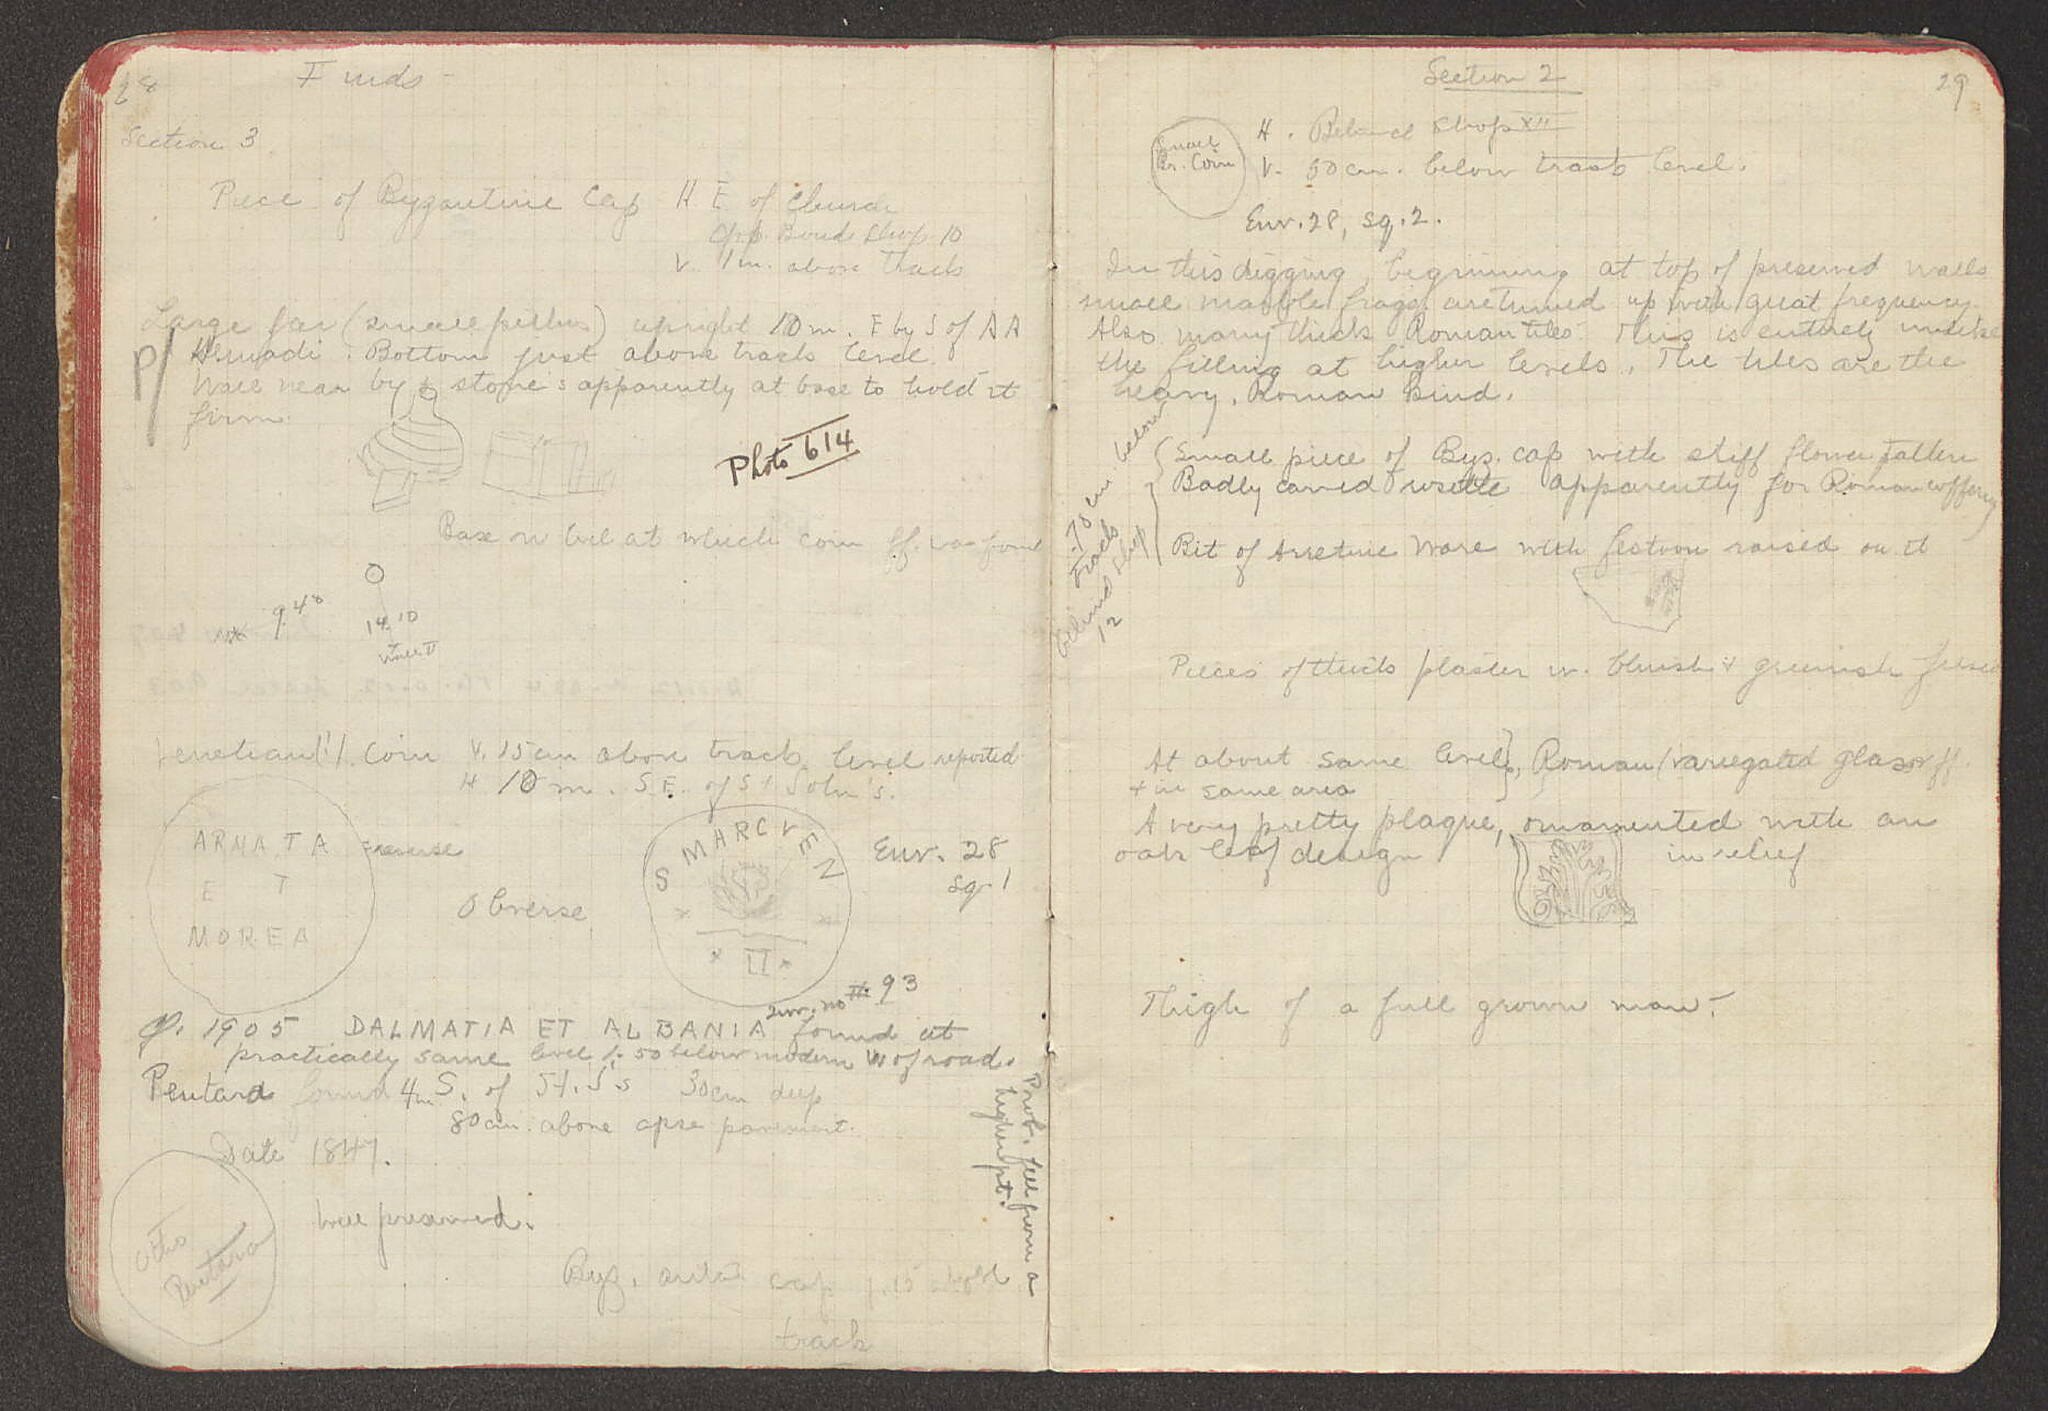 28
Finds -
Section 3
Piece of Byzantine Cap H E of church
opp. Behind Shop 10
V. 1 m. above track
Large jar (small pithos) upright 10 m. E by S of AA
P/
Bottom just above track level
Wall near by & stones apparently at base to hold it
firm.
Photo 614
Base or level at which coin ff. was found
9.48
14.10
Venetian(?) Coin V. 15 cm above track level reported
H 10 m. S E. of St John's.
ARMATA
E T
MOREA
reverse
Obverse
S MARC VEN
II
Env. 28
Sq. 1
Env. no 93
Cf. 1905 DALMATIA ET ALBANIA found at
practically same level 1.50 below modern W of road.
Pentara found 4m S. of St. J.s 30cm deep
80 cm. above apse pavement.
Date 1847.
Otho
Pentara
Well preserved.
Byz. cap 1.15 above
track
Prob. fell from a
higher pt.
Section 2
29
Small
Br. Coin
H. Behind Shop XII
V. 50 cm. below track level.
Env. 28, sq. 2.
In this digging, beginning at top of preserved walls
small marble frags are turned up with great frequency.
Also many thick Roman tiles. This is entirely unlike
the filling at higher levels. The tiles are the
heavy, Roman kind.
.75 cm below
track
behind shop
12
Small piece of Byz. cap with stiff flower pattern
Badly carved rosette apparently for Roman coffering
Bit of Arretine Ware with festoon raised on it
Pieces of thick plaster w. bluish & greenish
At about same level, Roman variegated glass ff.
+ in same area
A very pretty plaque, ornamented with an
oak leaf design in relief
Thigh of a full grown man.